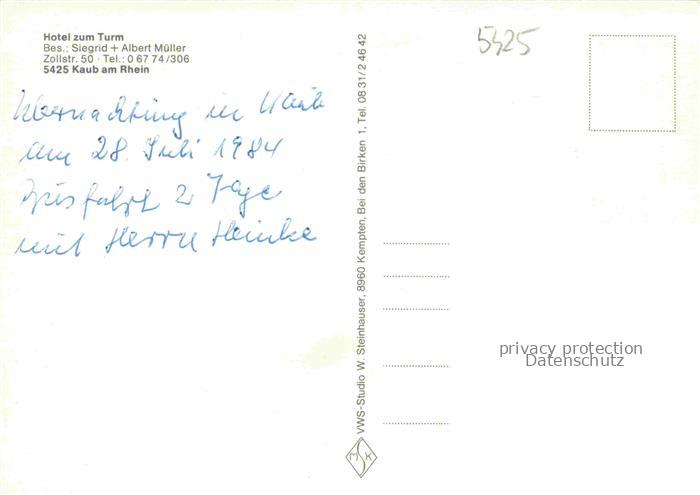 Hotel zum Turm
Bes.: Siegrid + Albert Müller
Zollstr. 50 · Tel.: 0 67 74/306
5425 Kaub am Rhein
Übernachtung in Kaub
am 28. Juli 1984
Ausfahrt 2 Tage
mit Herrn Heinke
5425
VWS-Studio W. Steinhauser, 8960 Kempten, Bei den Birken 1, Tel. 08 31/2 46 42
MSK
privacy protection
Datenschutz